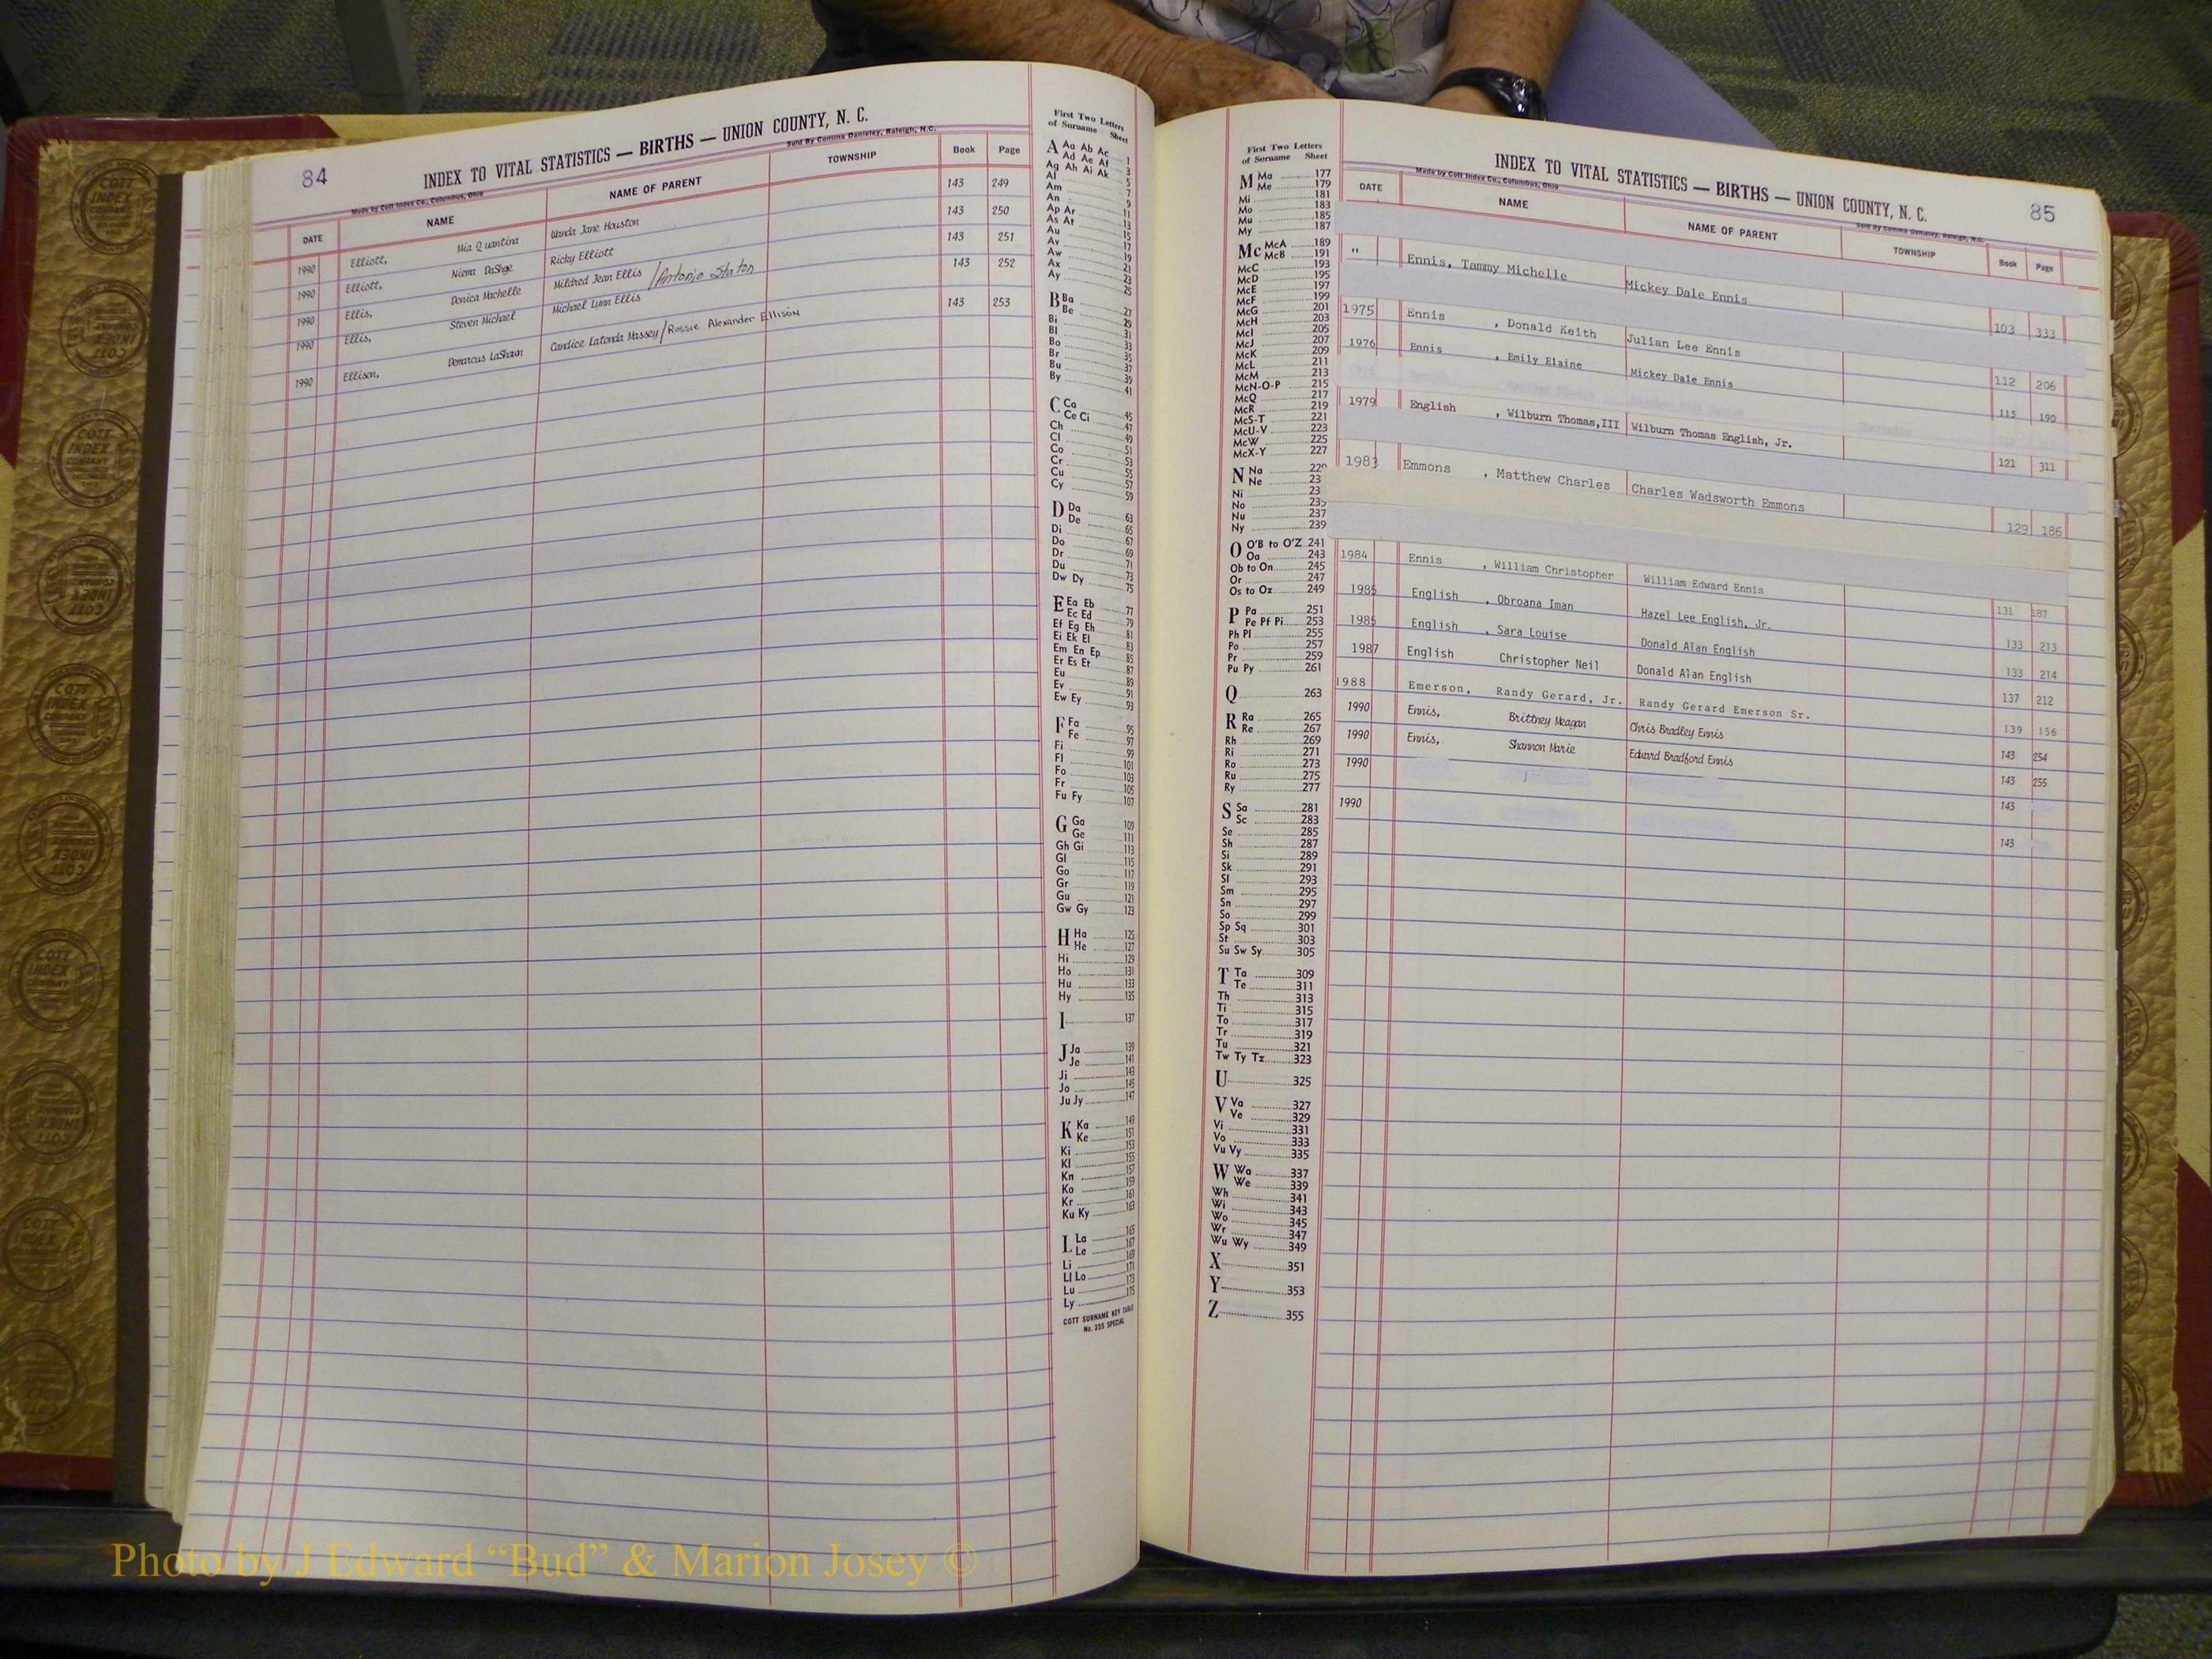 84
INDEX TO VITAL STATISTICS — BIRTHS — UNION COUNTY, N. C.
Made by Cott Index Co., Columbus, Ohio
Sold By Comma Danieley, Raleigh, N.C.
DATE NAME NAME OF PARENT TOWNSHIP Book Page
1990 Elliott, Mia Quantina Wanda Jane Houston 143 249
1990 Elliott, Ricky Elliott 143 250
1990 Ellis, Donica Machelle Mildred Jean Ellis / Antonio Staton 143 251
1990 Ellis, Steven Michael Michael Lynn Ellis 143 252
1990 Ellison, Demarcus LaShaun Candice Latonda Massey/Rossie Alexander Ellison 143 253
First Two Letters
of Surname Sheet
A Aa Ab Ac 1
Ad Ae Af 3
Ag Ah Ai Ak 5
Al 7
Am 9
An 11
Ap Ar 13
As At 15
Au 17
Av 19
Aw 21
Ax 23
Ay 25
B Ba 27
Be 29
Bi 31
Bl 33
Bo 35
Br 37
Bu 39
By 41
C Ca 45
Ce Ci 47
Ch 49
Cl 51
Co 53
Cr 55
Cu 57
Cy 59
D Da 63
De 65
Di 67
Do 69
Dr 71
Du 73
Dw Dy 75
E Ea Eb 77
Ec Ed 79
Ef Eg Eh 81
Ei Ek El 83
Em En Ep 85
Er Es Et 87
Eu 89
Ev 91
Ew Ey 93
F Fa 95
Fe 97
Fi 99
Fl 101
Fo 103
Fr 105
Fu Fy 107
G Ga 109
Ge 111
Gh Gi 113
Gl 115
Go 117
Gr 119
Gu 121
Gw Gy 123
H Ha 125
He 127
Hi 129
Ho 131
Hu 133
Hy 135
I 137
J Ja 139
Je 141
Ji 143
Jo 145
Ju Jy 147
K Ka 149
Ke 151
Ki 153
Kl 155
Kn 157
Ko 159
Kr 161
Ku Ky 163
L La 165
Le 167
Li 169
Ll Lo 171
Lu 173
Ly 175
COTT SURNAME KEY TABLE
No. 355 SPECIAL
First Two Letters
of Surname Sheet
M Ma 177
Me 179
Mi 181
Mo 183
Mu 185
My 187
Mc McA 189
McB 191
McC 193
McD 195
McE 197
McF 199
McG 201
McH 203
McI 205
McJ 207
McK 209
McL 211
McM 213
McN-O-P 215
McQ 217
McR 219
McS-T 221
McU-V 223
McW 225
McX-Y 227
N Na 229
Ne 23
Ni 23
No 235
Nu 237
Ny 239
O O'B to O'Z 241
Oa 243
Ob to On 245
Or 247
Os to Oz 249
P Pa 251
Pe Pf Pi 253
Ph Pl 255
Po 257
Pr 259
Pu Py 261
Q 263
R Ra 265
Re 267
Rh 269
Ri 271
Ro 273
Ru 275
Ry 277
S Sa 281
Sc 283
Se 285
Sh 287
Si 289
Sk 291
Sl 293
Sm 295
Sn 297
So 299
Sp Sq 301
St 303
Su Sw Sy 305
T Ta 309
Te 311
Th 313
Ti 315
To 317
Tr 319
Tu 321
Tw Ty Tz 323
U 325
V Va 327
Ve 329
Vi 331
Vo 333
Vu Vy 335
W Wa 337
We 339
Wh 341
Wi 343
Wo 345
Wr 347
Wu Wy 349
X 351
Y 353
Z 355
INDEX TO VITAL STATISTICS — BIRTHS — UNION COUNTY, N. C.
85
Made by Cott Index Co., Columbus, Ohio
Sold by Comma Danieley, Raleigh, N.C.
DATE NAME NAME OF PARENT TOWNSHIP Book Page
" Ennis, Tammy Michelle Mickey Dale Ennis 103 333
1975 Ennis , Donald Keith Julian Lee Ennis 112 206
1976 Ennis , Emily Elaine Mickey Dale Ennis 115 190
1979 English , Wilburn Thomas,III Wilburn Thomas English, Jr. 121 311
1983 Emmons , Matthew Charles Charles Wadsworth Emmons 129 186
1984 Ennis , William Christopher William Edward Ennis 131 187
1985 English , Obroana Iman Hazel Lee English, Jr. 133 213
1985 English , Sara Louise Donald Alan English 133 214
1987 English Christopher Neil Donald Alan English 137 212
1988 Emerson, Randy Gerard, Jr. Randy Gerard Emerson Sr. 139 156
1990 Ennis, Brittney Meagan Chris Bradley Ennis 143 254
1990 Ennis, Shannon Marie Edward Bradford Ennis 143 255
1990 143
1990 143
Photo by J Edward “Bud” & Marion Josey ©